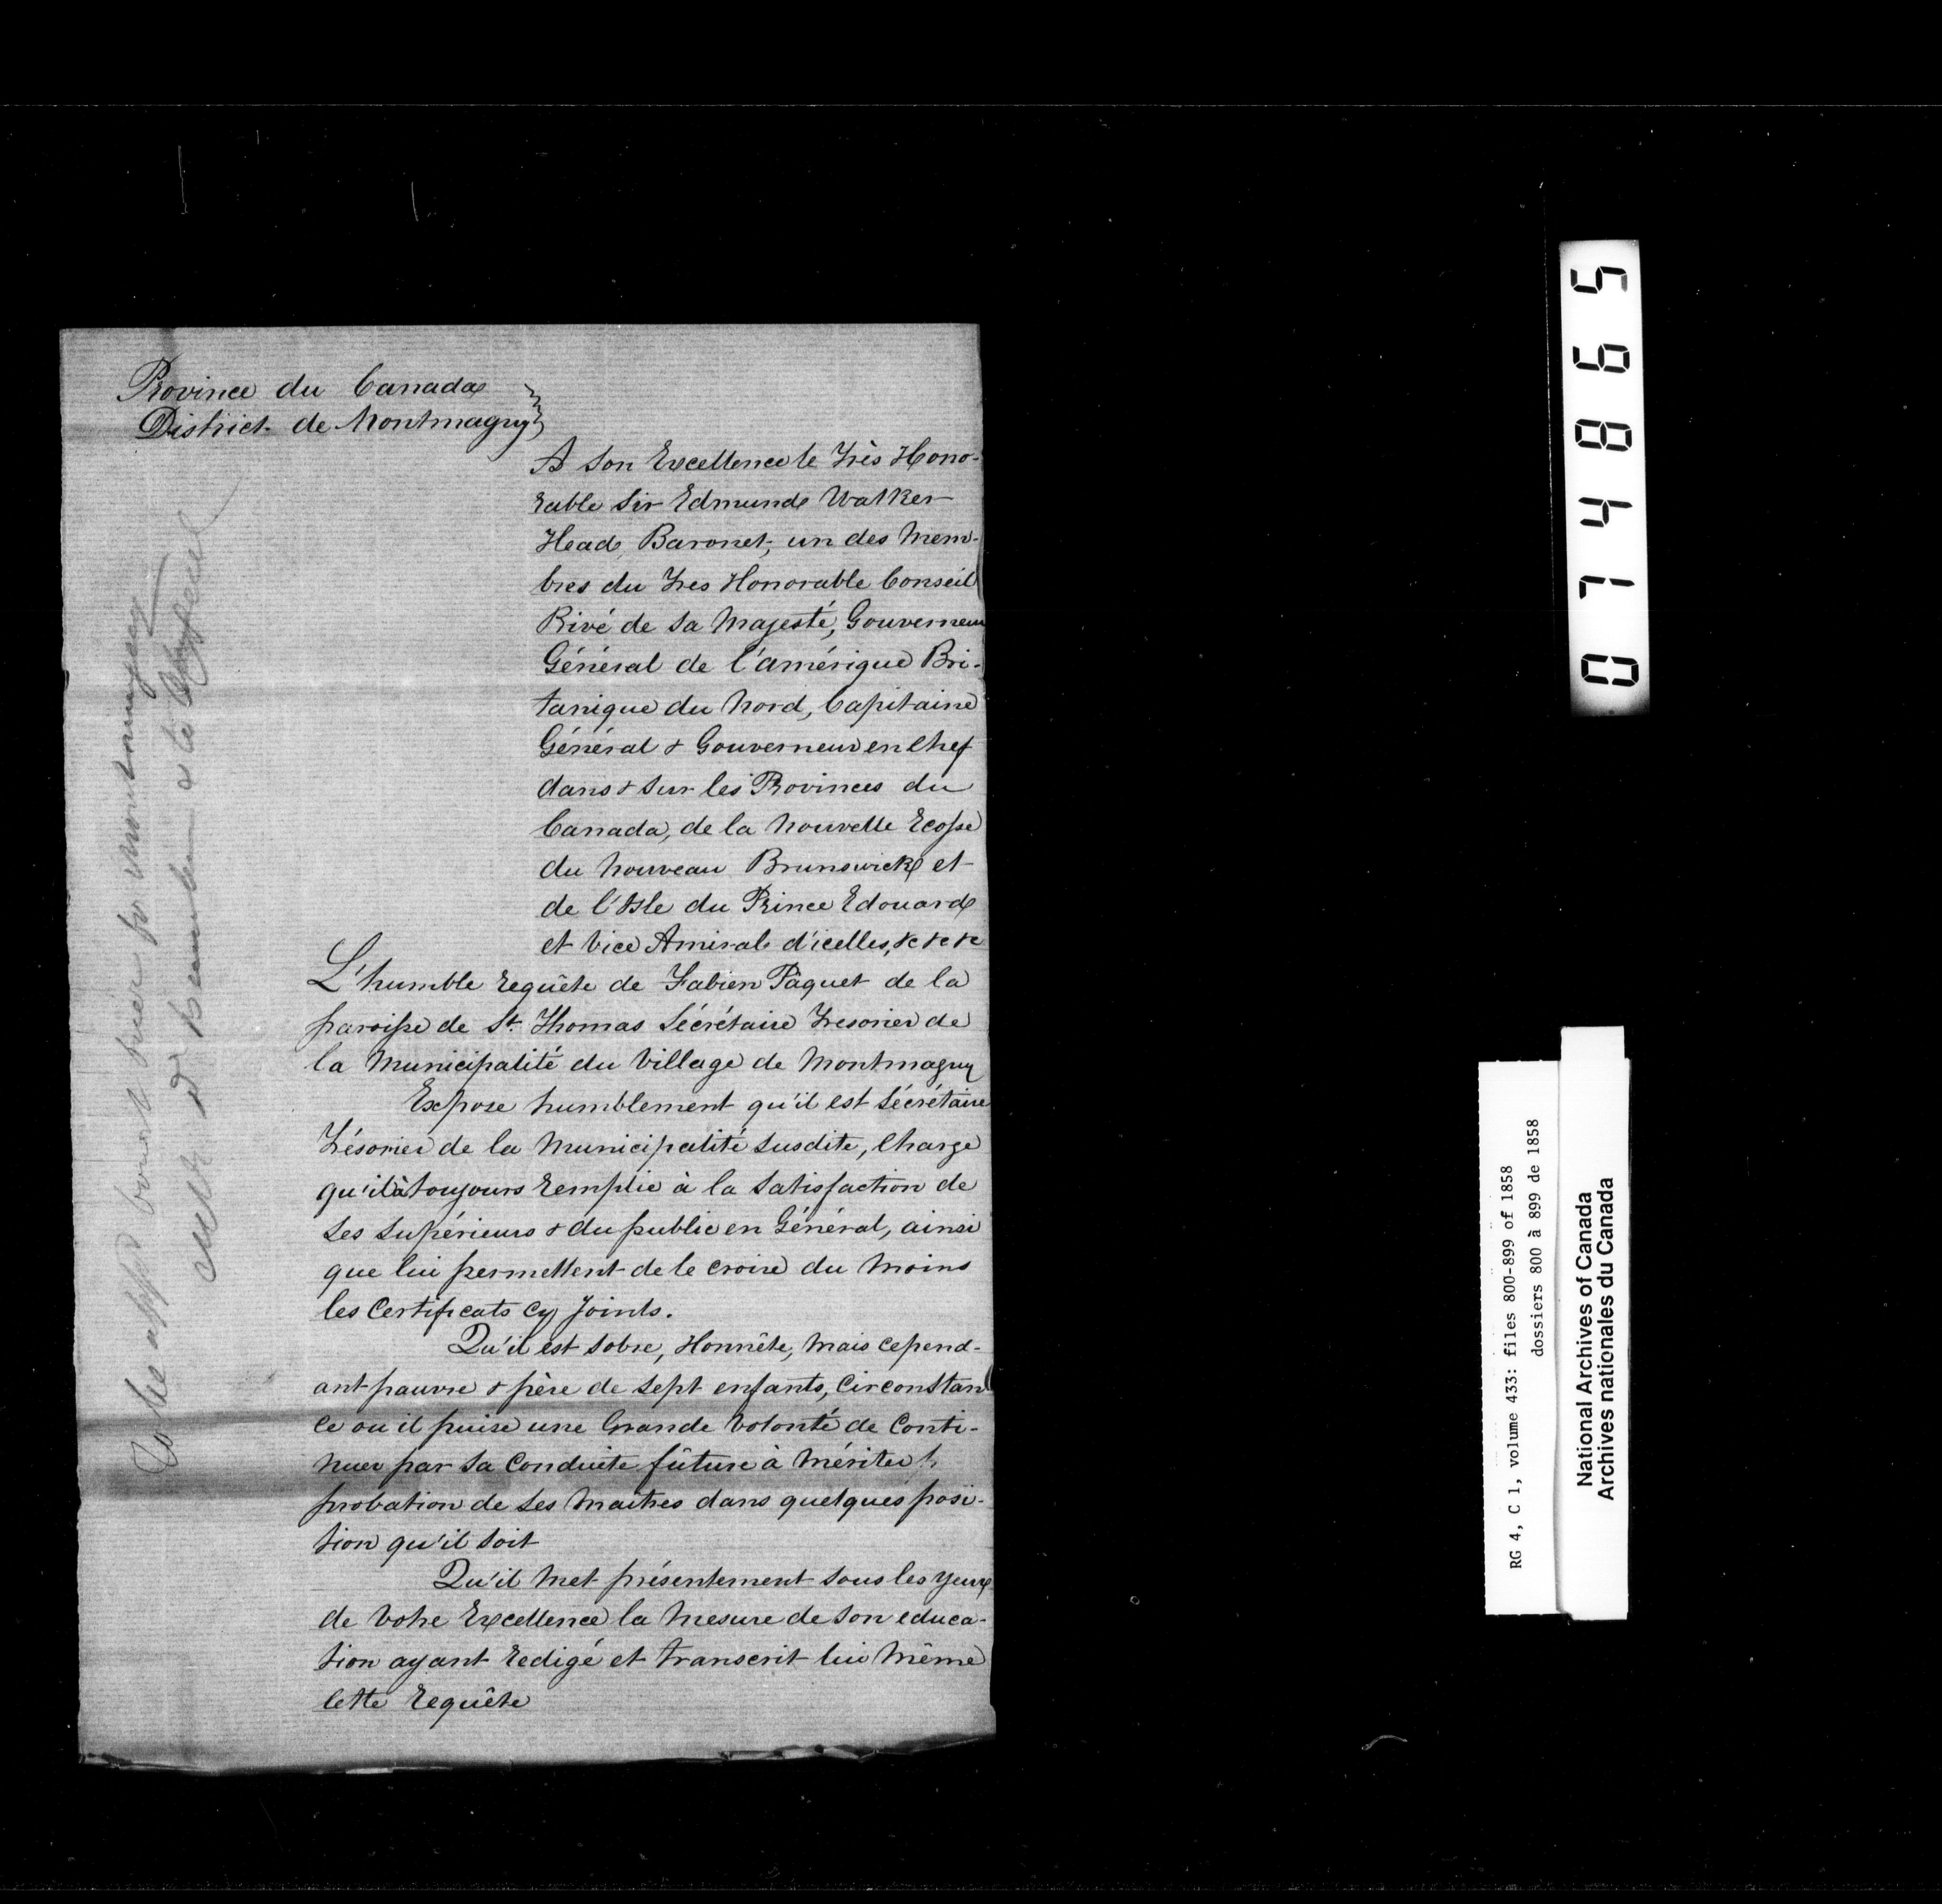 Province du Canada
District de Montmagny
A Son Excellence le Très Hono-
rable Sir Edmund Walker
Head, Baronet, un des Mem-
bres du Tres Honorable Conseil
Privé de Sa Majesté, Gouverneur
Général de l'amérique Bri-
tanique du Nord, Capitaine
Général & Gouverneur en Chef
dans & sur les Provinces du
Canada, de la Nouvelle Ecosse
du Nouveau Brunswick et
de l'Isle du Prince Edouard
et Vice Amiral d'icelles, &c &c &c
L'humble requête de Fabien Pâquet de la
paroisse de St. Thomas Sécrétaire Tresorier de
la Municipalité du Village de Montmagny
Expose humblement qu'il est Sécrétaire
Trésorier de la Municipalité susdite, Charge
qu'il à toujours remplie à la Satisfaction de
Ses Supérieurs & du public en Général, ainsi
que lui permettent de le croire du moins
les Certificats cy Joints.
Qu'il est Sobre, Honnête, Mais cepend-
ant pauvre & père de Sept enfants, Circonstan
ce ou il puise une Grande Volonté de Conti-
nuer par Sa Conduite fûture à Mériter
probation de Ses Maitres dans quelques posi-
tion qu'il Soit
Qu'il Met présentement Sous les Yeux
de Votre Excellence la Mesure de Son educa-
tion ayant redigé et transcrit lui Même
Cette requête
To be appd Court Crier for Montmagny
074865
RG 4, C 1, volume 433: files 800-899 of 1858
dossiers 800 à 899 de 1858
National Archives of Canada
Archives nationales du Canada